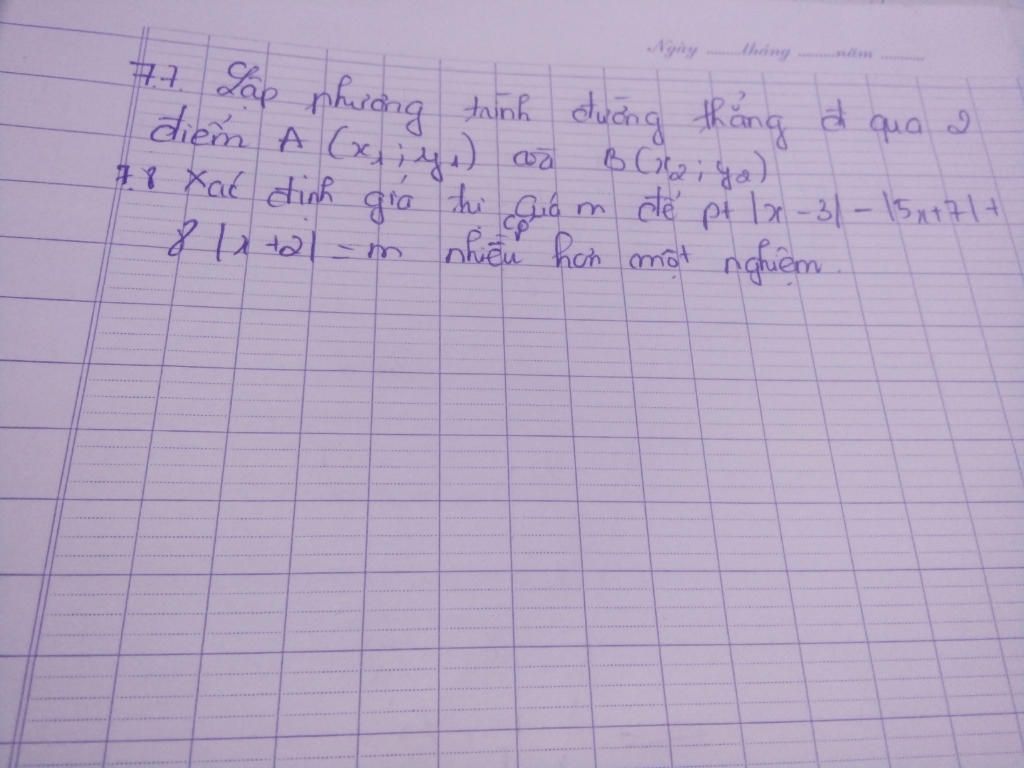 Ngày ........tháng .........năm ..........
7.7. Lập phương trình đường thẳng đi qua 2
điểm A (x₁ ; y₁) và B (x₂ ; y₂)
7.8 Xác định giá trị của m để pt |x - 3| - |5x + 7| +
8 |x + 2| = m có nhiều hơn một nghiệm.